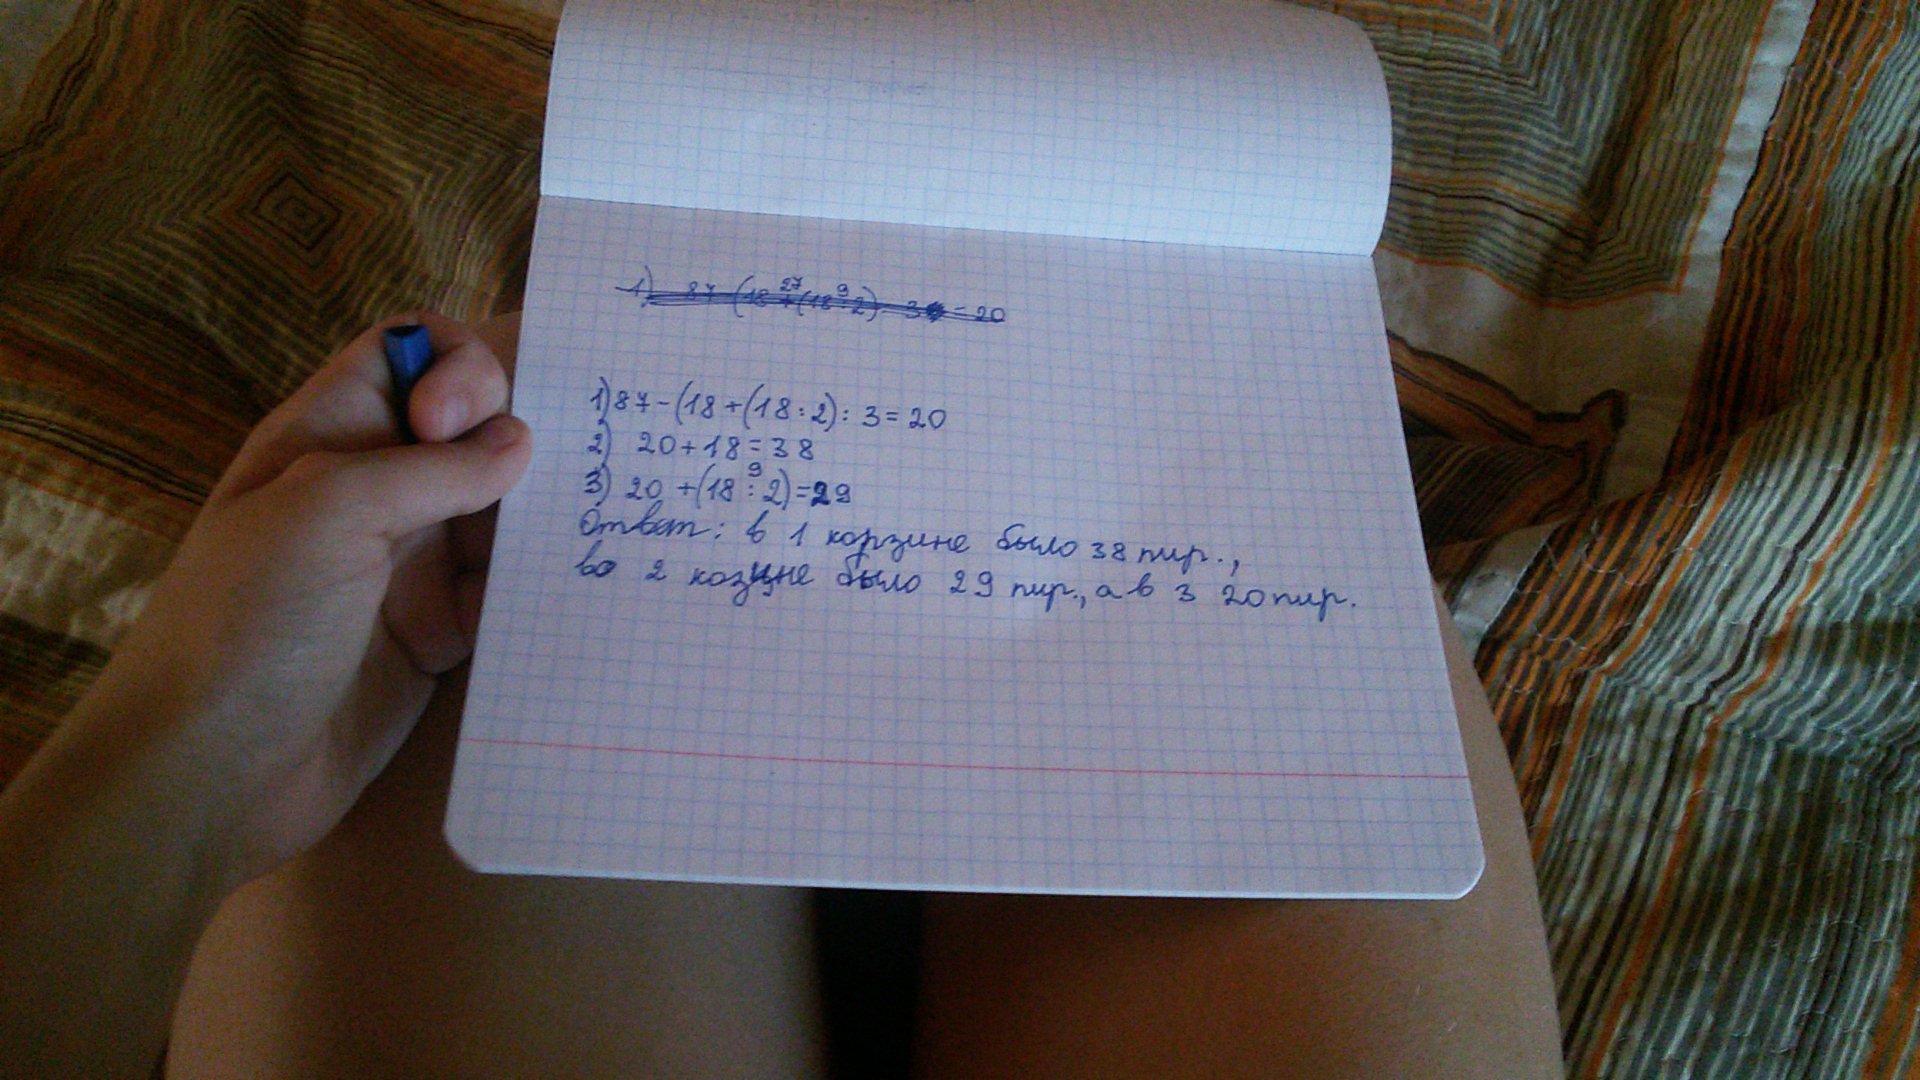 1) 87 (18 + (18 : 2) 3 = 20
27 9
1) 87 - (18 + (18 : 2) : 3 = 20
2) 20 + 18 = 38
9
3) 20 + (18 : 2) = 29
Ответ: в 1 корзине было 38 пир.,
во 2 козине было 29 пир., а в 3 20 пир.